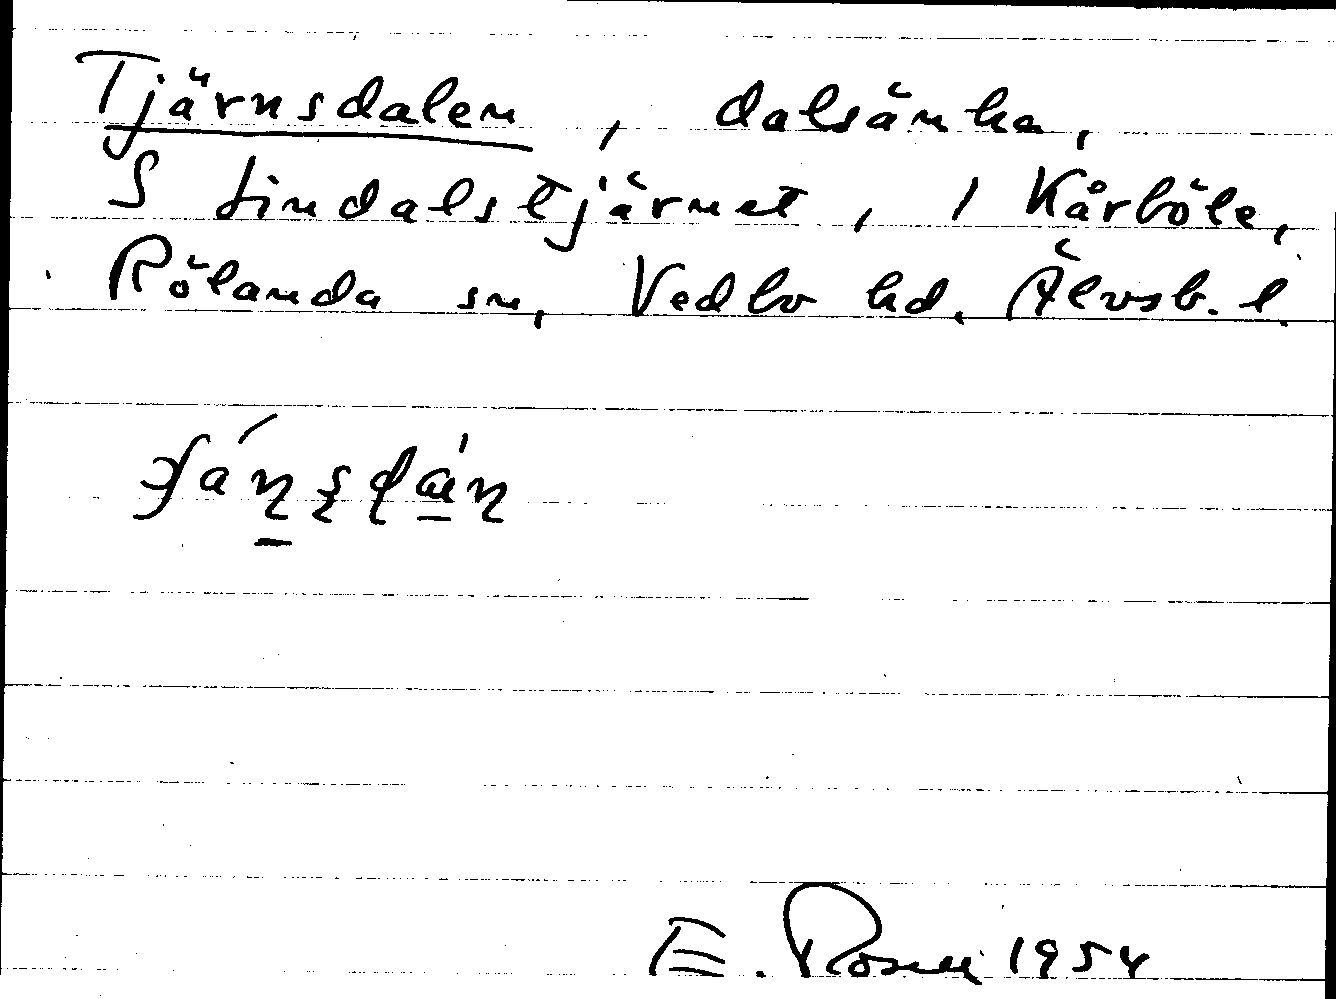 Tjärnsdalen, dalsänka,
S Lindalstjärnet, i Kårböle,
Rölanda sn, Vedbo hd. Älvsb. l.
E. Rosell 1954